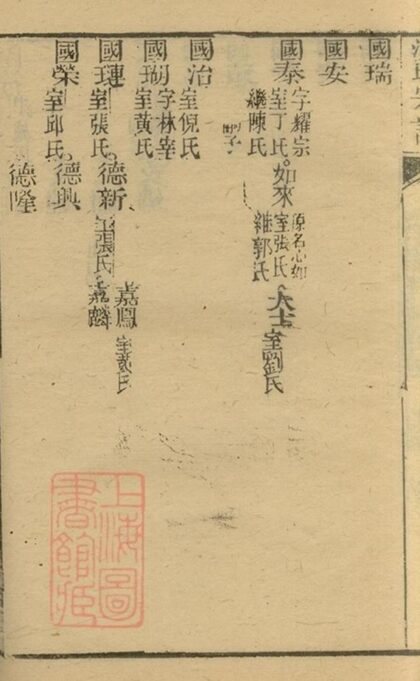 國瑞
國安
國泰字耀宗室丁氏繼陳氏
如來原名心如室張氏繼郭氏
室劉氏
國治室倪氏
國瑚字林宰室黃氏
國璉室張氏
德新室張氏
嘉麟
嘉鳳室戴氏
國榮室邱氏
德興
德隆
上海圖書館藏